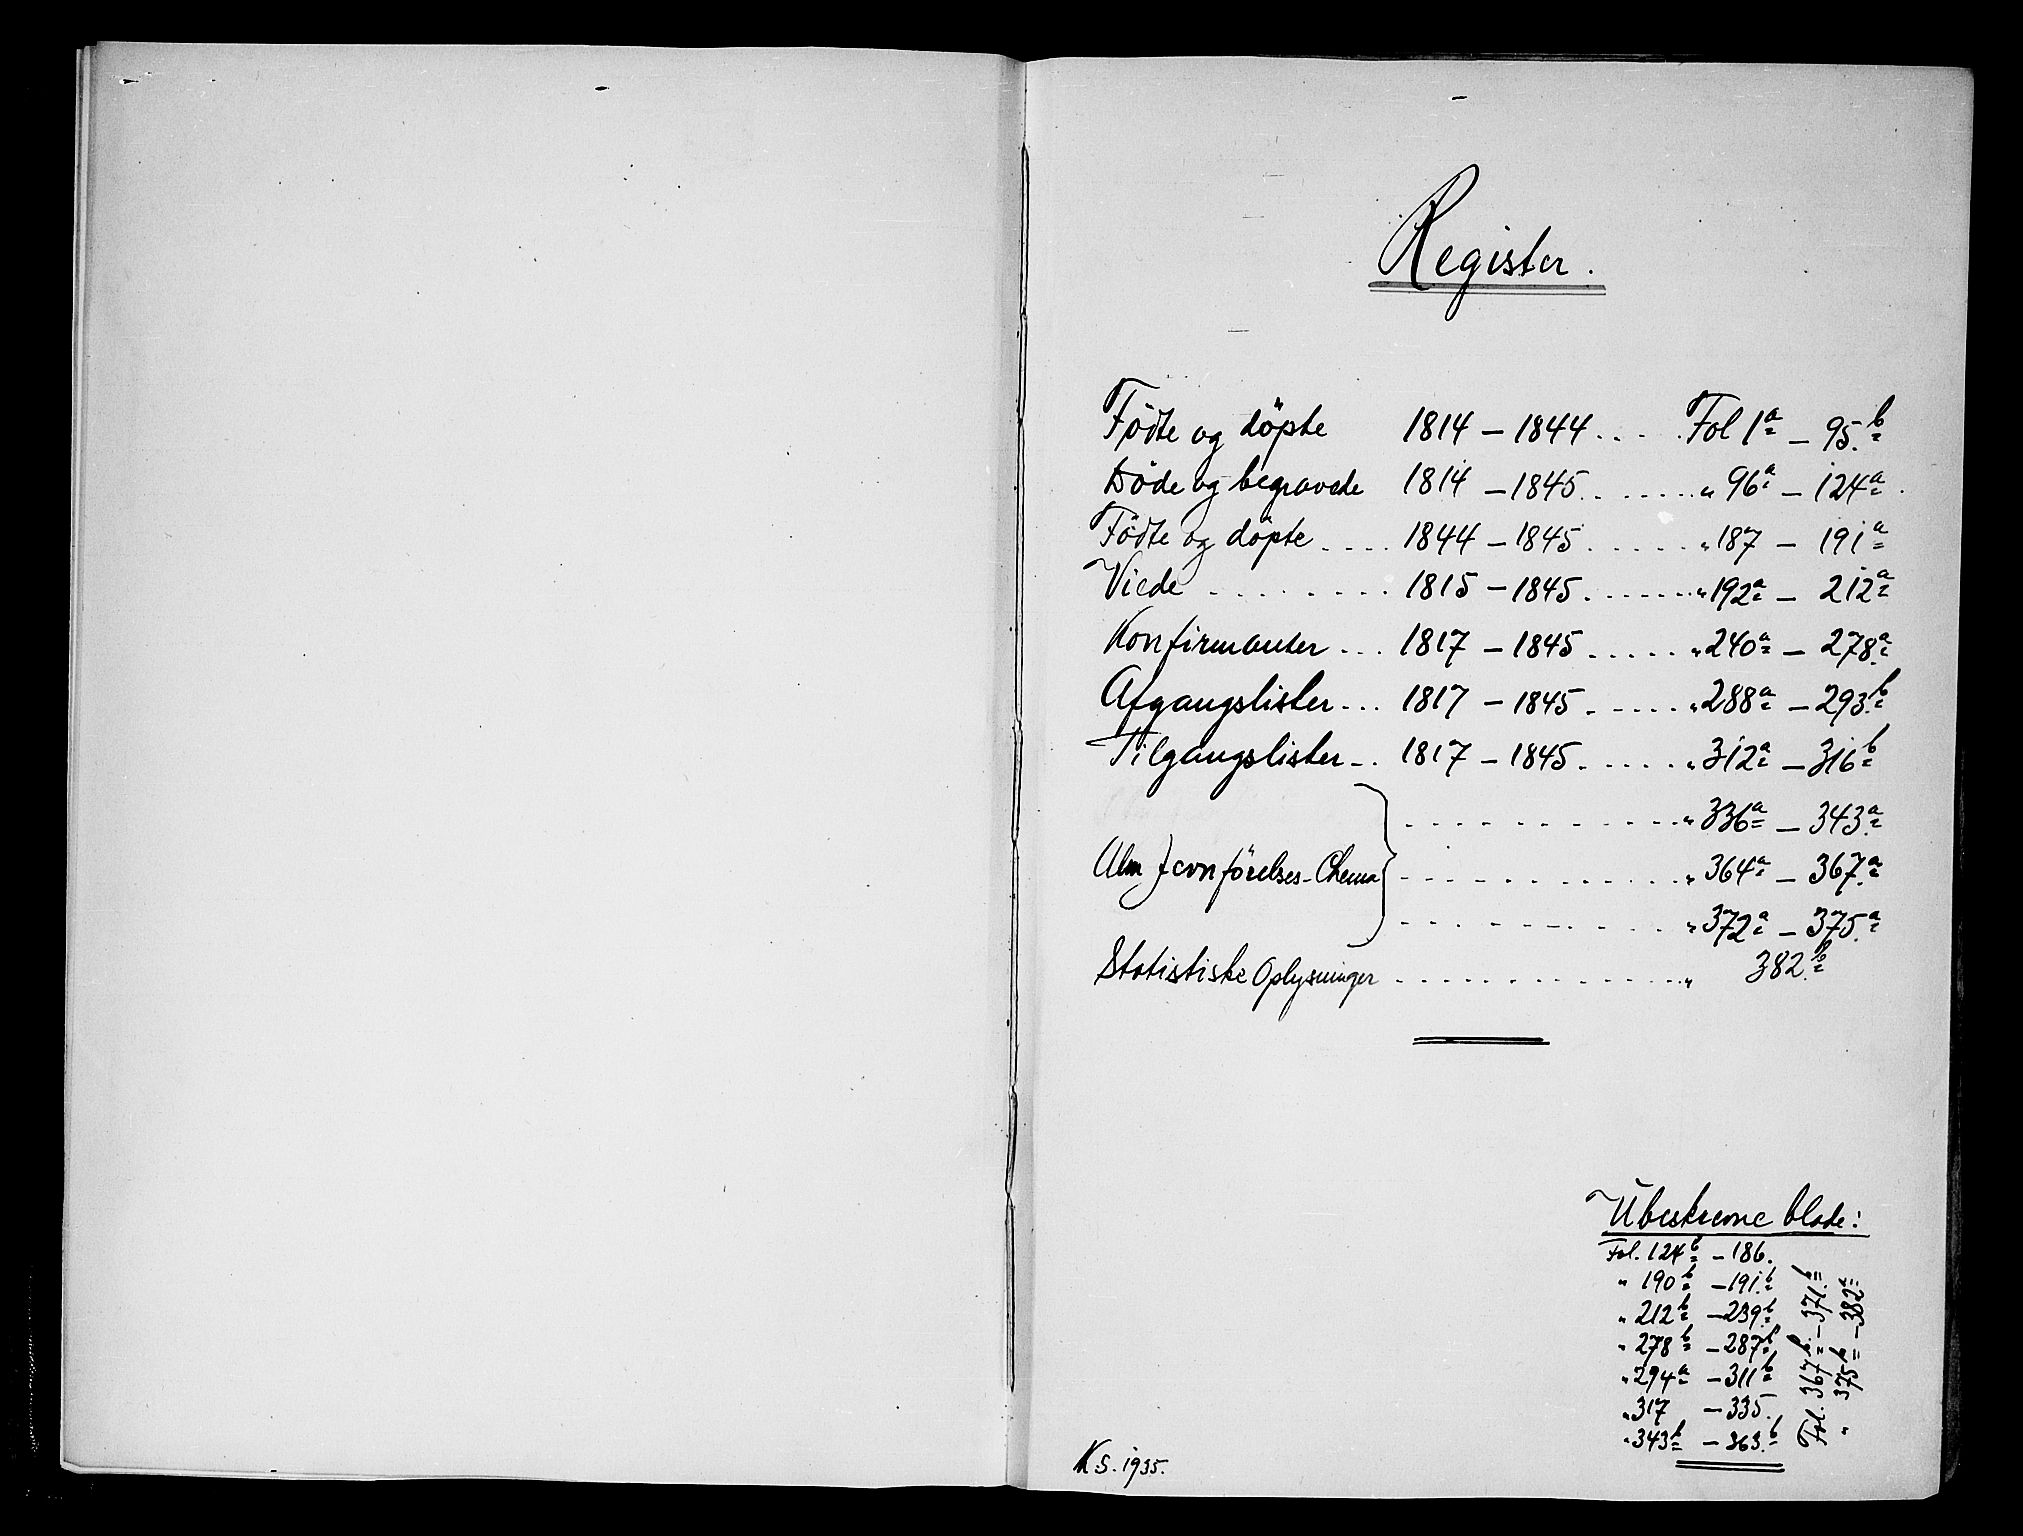 Register.
Födte og döpte 1814 – 1844 . . . . Fol 1a – 95.b
Döde og begravede 1814 – 1845 . . . . . . " 96a – 124a.
Födte og döpte . . . . 1844 – 1845 . . . . . . " 187 – 191a
Viede . . . . . . . . 1815 – 1845 . . . . . . " 192a – 212a
Konfirmanter . . . 1817 – 1845 . . . . . " 240a – 278.a
Afgangslister . . . 1817 – 1845 . . . . . " 288a – 293.b
Tilgangslister . . 1817 – 1845 . . . . . " 312a – 316b
. . . . . . . . . . . " 336a – 343.a
Alm Jevnförelses-Chema . . . . . . . . . . . " 364a – 367.a
. . . . . . . . . . . " 372a – 375.a
Statistiske Oplysninger . . . . . . . . . . . . . " 382.b
Ubeskrevne blade:
Fol. 124b – 186.
" 190b – 191.b
" 212b – 239.b
" 278b – 287b
" 294a – 311b
" 317 – 335.
" 343b – 363.b
Fol. 367b – 371.b
" 375b – 382a
K.S. 1935.